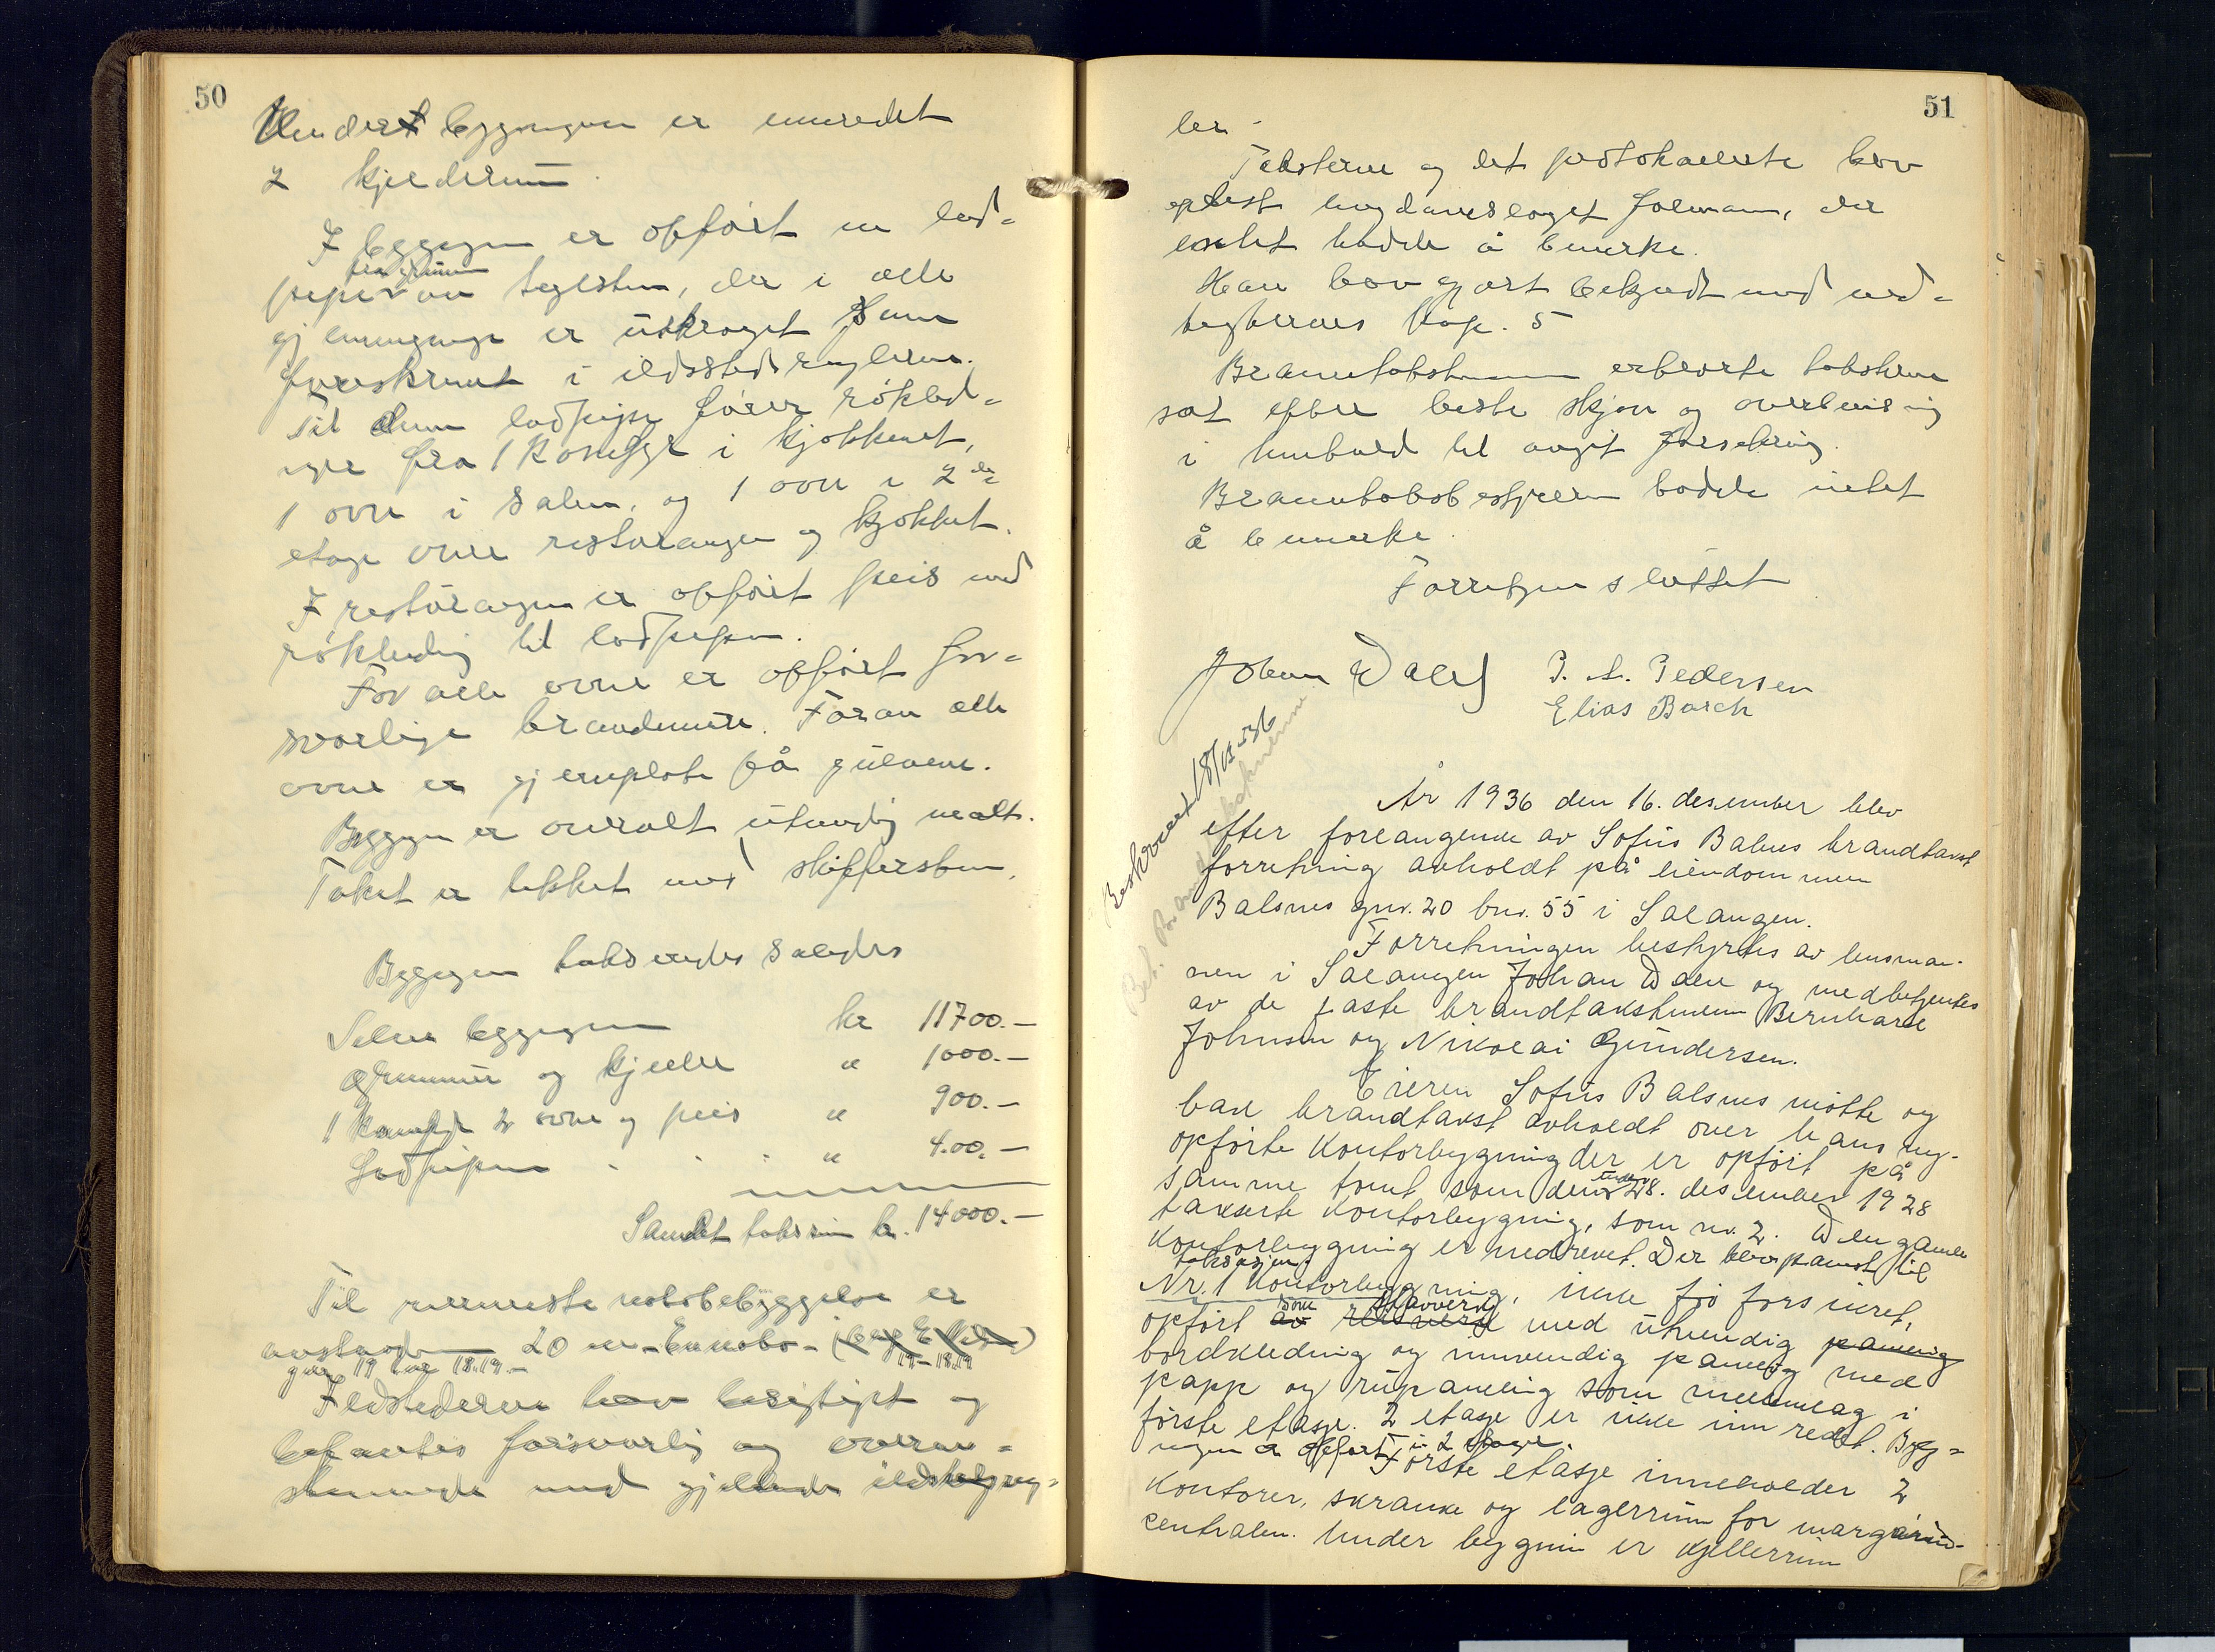 50
Under bygningen er innredet
2 kjelderrum.
I bygningen er opført en lod-
pipe fra grunnen av teglsten, der i alle
gjennemgange er utkraget som
foreskrevet i ildsstedsreglerne.
Til denne lodpipe fører røkled-
inger fra 1 Komfyr i kjøkkenet,
1 ovn i salen, og 1 ovn i 2den
etage over restorangen og kjøkket.
I restorangen er opført peis med
røkleding til lodpipen.
For alle ovne er opført for-
svarlige brandmure. Foran alle
ovne er jernplate på gulvene.
Byggen er overalt utvendig malt.
Taket er tekket med skiffersten.
Byggingen taksertes således
Selve byggingen kr 11700.-
Grunnmur og kjeller " 1000.-
1 Komfyr 2 ovne og peis " 900.-
Lodpipen . . . " 400.-
Samlet takssum kr. 14000.-
Til nærmeste nabobebyggelse er
avstanden 20 m
gnr 19 bnr 18.19.-
19-18.19
Ildstederne blev besigtiget og
befantes forsvarlig og overen-
stemmende med gjeldende ildstedsreg-
51
ler.
Taksterne og det protokollerte blev
oplest branddireslaget formann, der
intet hadde å bemerke.
Han blev gjort bekjendt med ved-
tegternes kap. 5
Branntakstmennene erklærte taksterne
sat efter beste skjøn og overbevisning
i henhold til avgit forsikring.
Branntakstbestyreren hadde intet
å bemerke.
Forretningen sluttet
Johan Dahl P. A. Pedersen
Elias Barch
Beskrevet 18/12-36
År 1936 den 16. desember blev
efter forlangende av Sofus Balsnes brandtakst
forretning avholdt på eiendommen
Balsnes gnr. 20 bnr. 55 i Salangen.
Forretningen bestyrtes av lensman-
nen i Salangen Johan Dahl og medbetjentes
av de faste brandtakstmenn Bernhard
Johnsen og Nikolai Gundersen.
Eieren Sofus Balsnes møtte og
bad brandtakst avholdt over hans ny-
opførte Kontorbygning der er opført på
samme tomt som den under 28. desember 1928
takserte Kontorbygning, som nr. 2. Den gamle
Kontorbygning er nedrevet. Der blev fremst til
taksasjon:
Nr. 1 Kontorbygning, ikke før forsikret,
opført av som reisverk stavverk med utvendig panelig
bordkledning og innvendig panelig med
papp og rupaneling som mellemlag i
første etasje. 2 etasje er ikke innredet. Byg-
ningen er opført i 2 etager.
Første etasje inneholder 2
Kontorer, skranke og lagerrum for margarin-
centralen. Under bygnin er kjellerrum